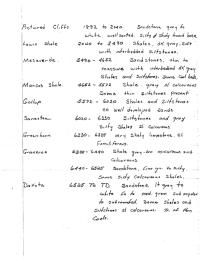 Pictured Cliffs 1892 to 2000 Sandstone gray to
white, well sorted, silty & shaly toward base
Lewis Shale 2000 to 3490 Shales, dk gray, silty
with interbedded siltstones.
Mesaverde 4652 Sandstones, thin to
massive with interbedded dk gray
shales and siltstones. Some coal beds.
Mancos Shale 4652 - 5272 Shale gray sl calcareous
Some thin siltstones present
Gallup 5272 - 6020 Shales and siltstones
no well developed sands
Sanastee 6020 - 6230 Siltstones and gray
silty shales sl calcareous
Greenhorn 6230 - Very shaly limestone, sl
fossiliferous.
Graneros Shale gray-brn micaceous and
calcareous
Sandstone, fine grn silty
Some silty calcareous shales.
Dakota 6525 To TD Sandstone lt gray to
white fn to med grain sub angular
to subrounded. Some shales and
siltstones sl calcareous
Coals.